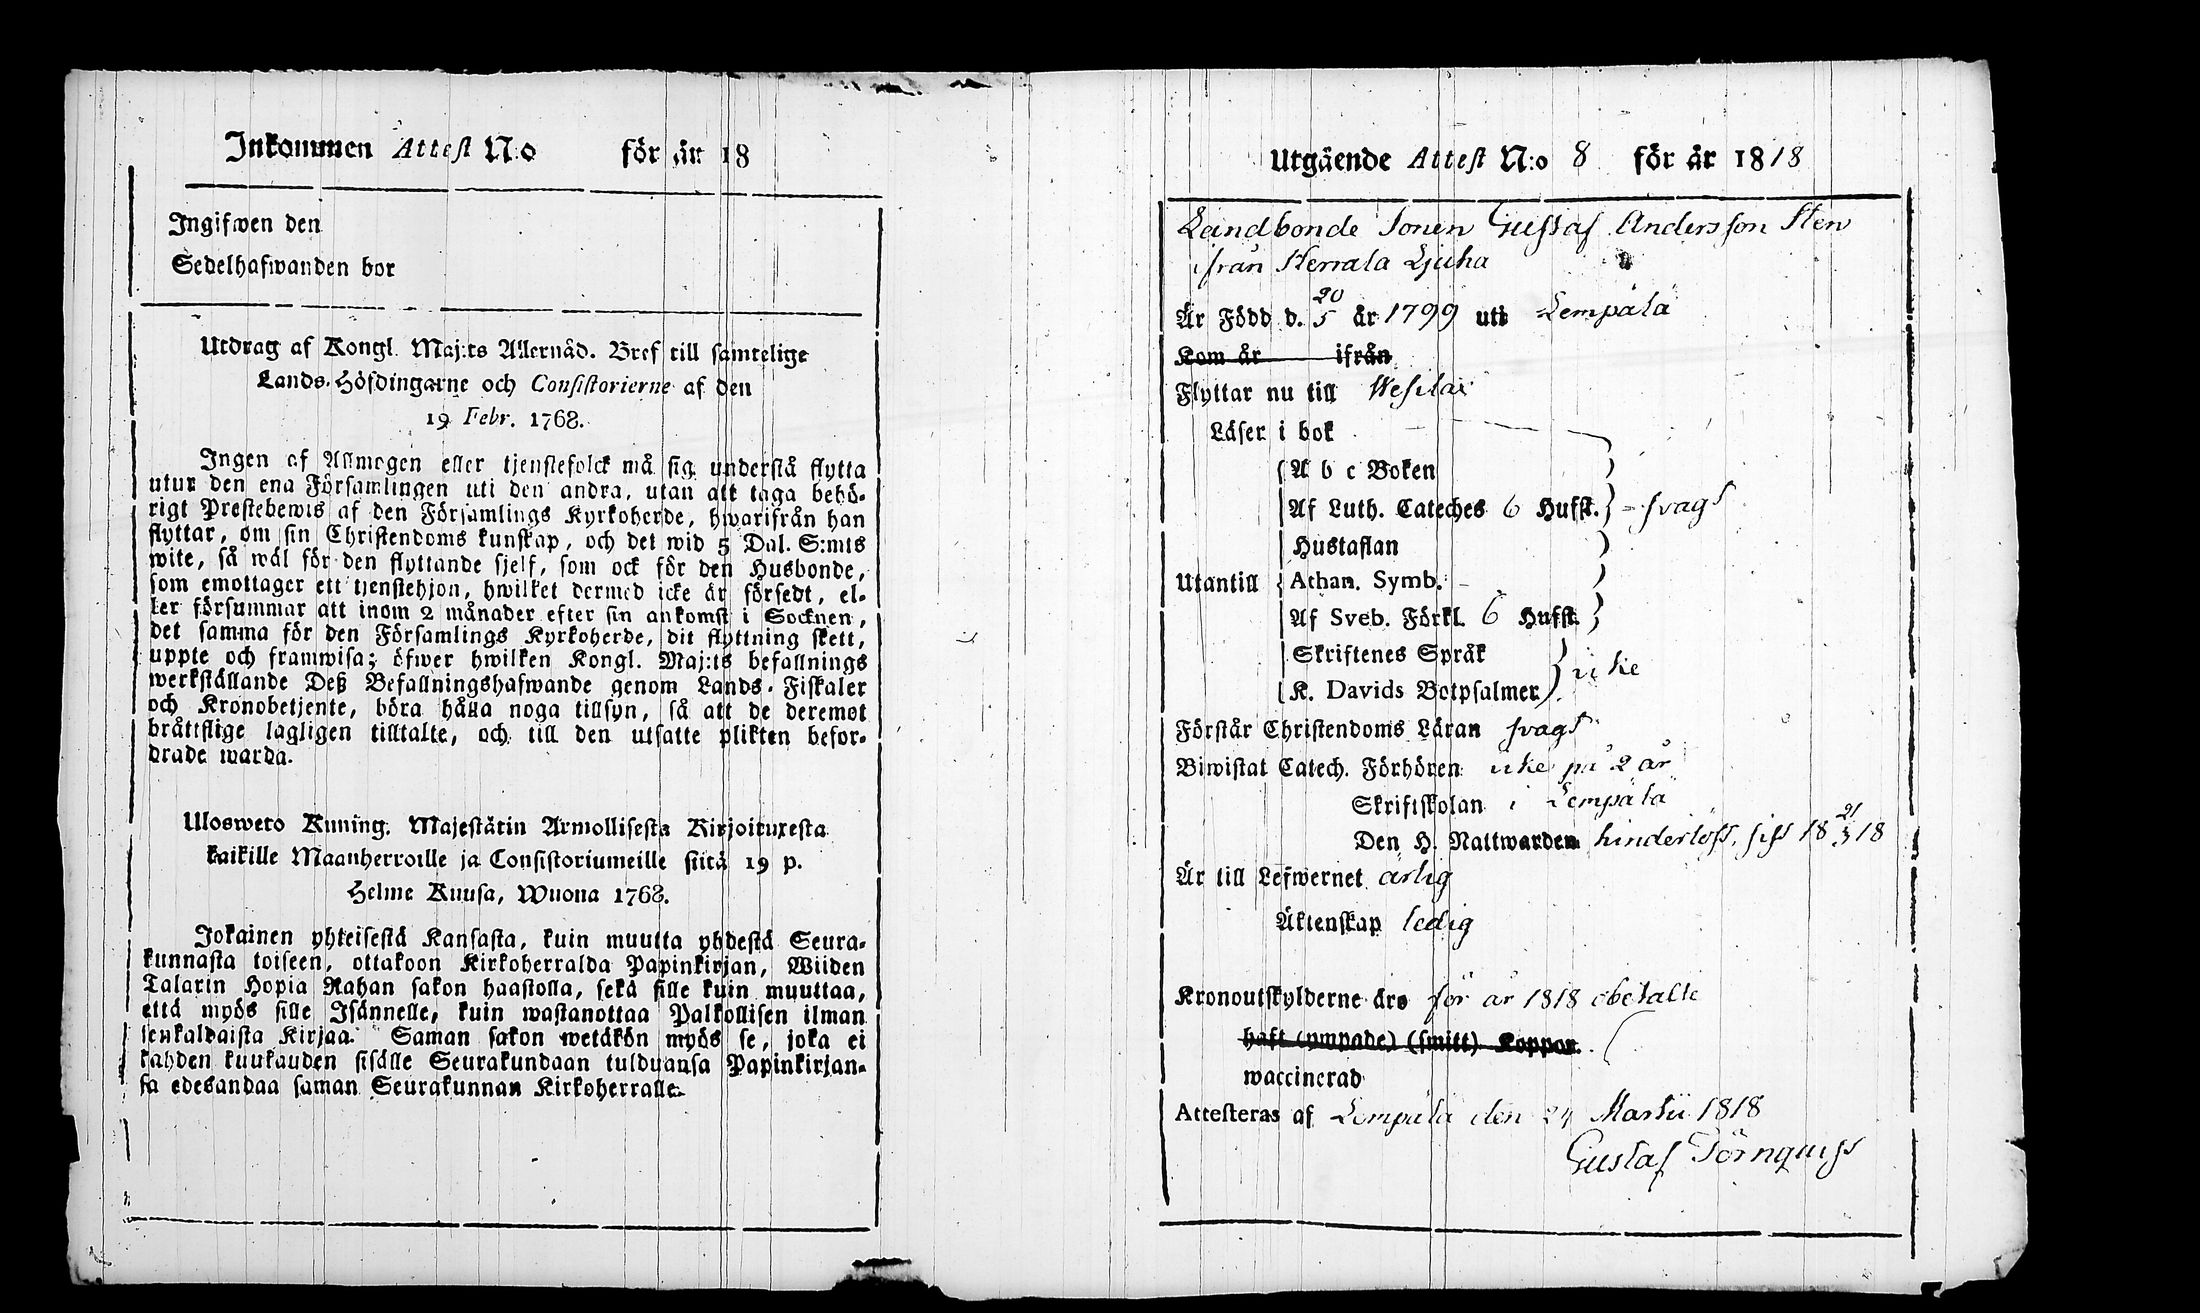 Inkommen Attest N:o för år 18
Ingifwen den
Sedelhafwanden bor
Utdrag af Kongl. Maj:ts Allernåd. Bref till samtelige
Lands-Höfdingarne och Consistorierne af den
19 Febr. 1768.
Ingen af Allmogen eller tjenstefolck må sig understå flytta
utur den ena Församlingen uti den andra, utan att taga behö-
rigt Prestebewis af den Församlings Kyrkoherde, hwarifrån han
flyttar, om sin Christendoms kunskap, och det wid 5 Dal. S:mts
wite, så wäl för den flyttande sjelf, som ock för den Husbonde,
som emottager ett tjenstehjon, hwilket dermed icke är försedt, el-
ler försummar att inom 2 månader efter sin ankomst i Socknen,
det samma för den Församlings Kyrkoherde, dit flyttning skett,
uppte och framwisa; öfwer hwilken Kongl. Maj:ts befallnings
werkställande Deß Befallningshafwande genom Lands-Fiskaler
och Kronobetjente, böra hålla noga tillsyn, så att de deremot
bråttslige lagligen tilltalte, och till den utsatte plikten befor-
drade warda.
Ulosweto Kuning. Majestätin Armollisesta Kirjoituxesta
kaikille Maanherroille ja Consistoriumeille siitä 19 p.
Helme Kuusa, Wuona 1768.
Jokainen yhteisestä Kansasta, kuin muutta yhdestä Seura-
kunnasta toiseen, ottakoon Kirkoherralda Papinkirjan, Wiiden
Talarin Hopia Rahan sakon haastolla, sekä sille kuin muuttaa,
että myös sille Isännelle, kuin wastanottaa Palkollisen ilman
senkaldaista Kirjaa. Saman sakon wetäkön myös se, joka ei
kahden kuukauden sisälle Seurakundaan tulduansa Papinkirjan-
sa edesandaa saman Seurakunnan Kirkoherralle.
Utgående Attest N:o 8 för år 1818
Landbonde Sonen Gustaf Andersson Sten
ifrån Herrala Ljuha
Är Född d. 20/5 år 1799 uti Lempälä
Kom år ifrån
Flyttar nu till Wesilax
Läser i bok
A b c Boken
Af Luth. Cateches 6 Hufst. - svagt
Hustaflan
Utantill Athan. Symb.
Af Sveb. Förkl. 6 Hufst.
Skriftenes Språk
K. Davids Botpsalmer icke
Förstår Christendoms Läran svagt
Biwistat Catech. Förhören icke på 2 år
Skriftskolan i Lempälä
Den H. Nattwarden hinderlöst, sist 18 21/3 18
Är till Lefwernet ärlig
Äktenskap ledig
Kronoutskylderne äro för år 1818 obetalte
haft (ympade) (smitt) Koppor.
waccinerad
Attesteras af Lempälä den 24 Martii 1818
Gustaf Törnquist